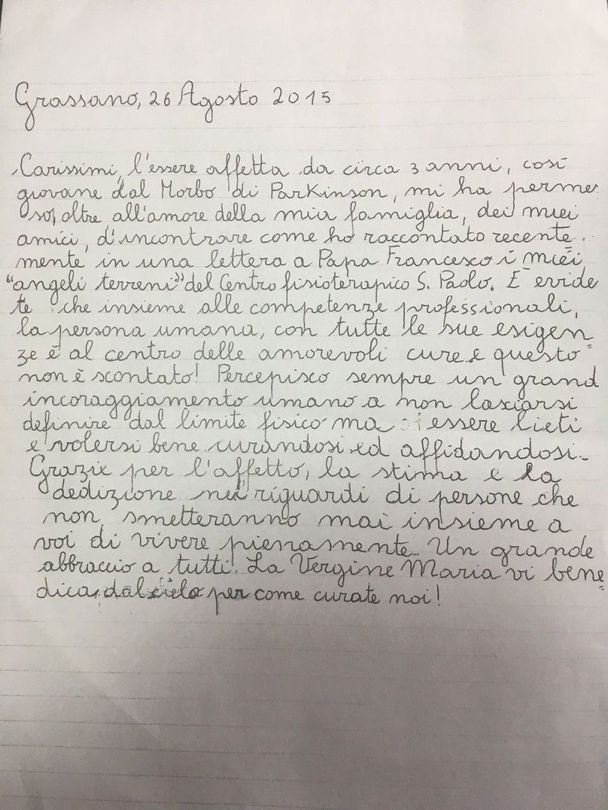 Grassano, 26 Agosto 2015
Carissimi, l'essere affetta da circa 3 anni, così
giovane dal Morbo di Parkinson, mi ha permes
so, oltre all'amore della mia famiglia, dei miei
amici, d'incontrare come ho raccontato recente=
mente in una lettera a Papa Francesco i miei
"angeli terreni" del Centro fisioterapico S. Paolo. E' evide
te che insieme alle competenze professionali,
la persona umana, con tutte le sue esigen
ze è al centro delle amorevoli cure e questo
non è scontato! Percepisco sempre un grand
incoraggiamento umano a non lasciarsi
definire dal limite fisico ma essere lieti
e volersi bene curandosi ed affidandosi.
Grazie per l'affetto, la stima e la
dedizione nei riguardi di persone che
non smetteranno mai insieme a
voi di vivere pienamente. Un grande
abbraccio a tutti. La Vergine Maria vi bene=
dica, dal cielo per come curate noi!